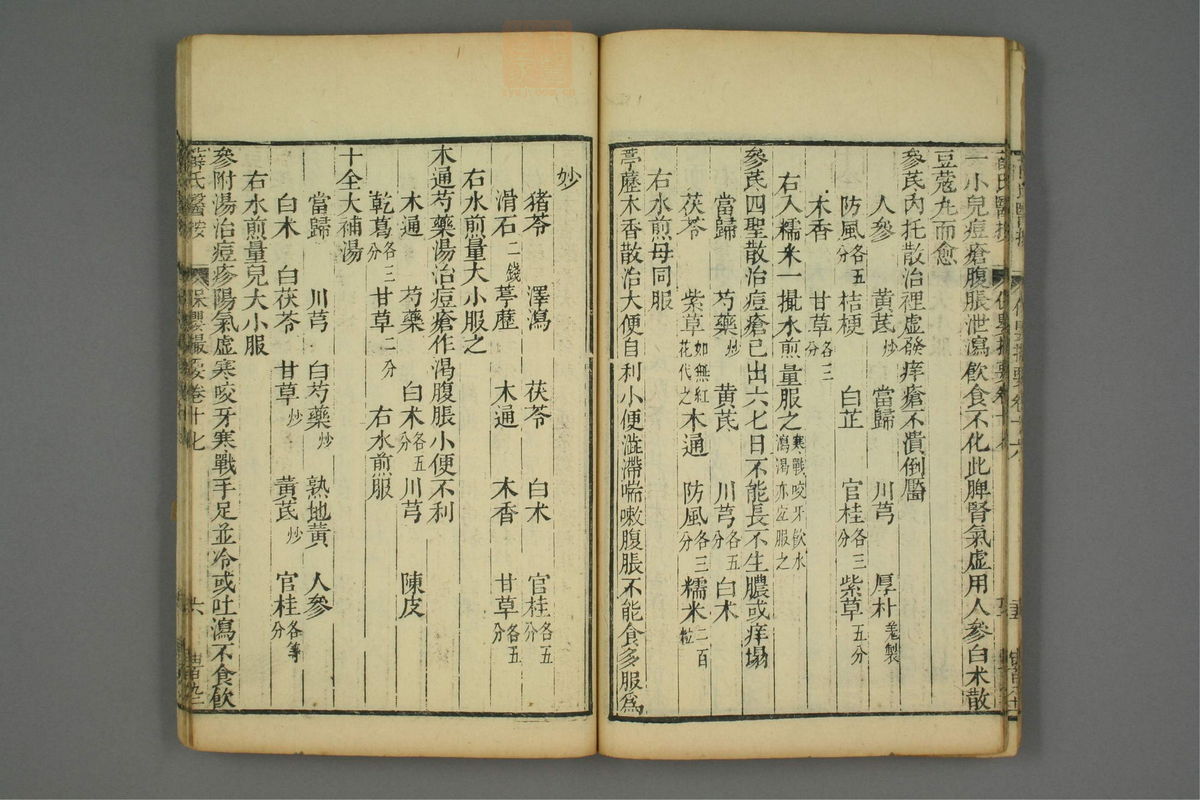 一小兒痘瘡腹脹泄瀉飲食不化此脾腎氣虛用人參白朮散
豆蔻丸而愈
參芪內托散治裡虛發痒瘡不潰倒靨
人參 黃芪炒 當歸 川芎 厚朴姜製
防風各五分 桔梗 白芷 官桂各三分 紫草五分
木香 甘草各三分
右入糯米一撮水煎量服之寒戰咬牙飲水瀉渴亦宜服之
參芪四聖散治痘瘡已出六七日不能長不生膿或痒塌
當歸 芍藥炒 黃芪 川芎各五分 白朮
茯苓 紫草如無紅花代之 木通 防風各三分 糯米二百粒
右水煎母同服
葶藶木香散治大便自利小便澁滯喘嗽腹脹不能食多服爲
妙
猪苓 澤瀉 茯苓 白朮 官桂各五分
滑石二錢 葶藶 木通 木香 甘草各五分
右水煎量大小服之
木通芍藥湯治痘瘡作渴腹脹小便不利
木通 芍藥 白朮各五分 川芎 陳皮
乾葛各三分 甘草二分 右水煎服
十全大補湯
當歸 川芎 白芍藥炒 熟地黃 人參
白朮 白茯苓 甘草炒 黃芪炒 官桂各等分
右水煎量兒大小服
參附湯治痘疹陽氣虛寒咬牙寒戰手足並冷或吐瀉不食飲
薛氏醫按 保嬰撮要卷十七 六